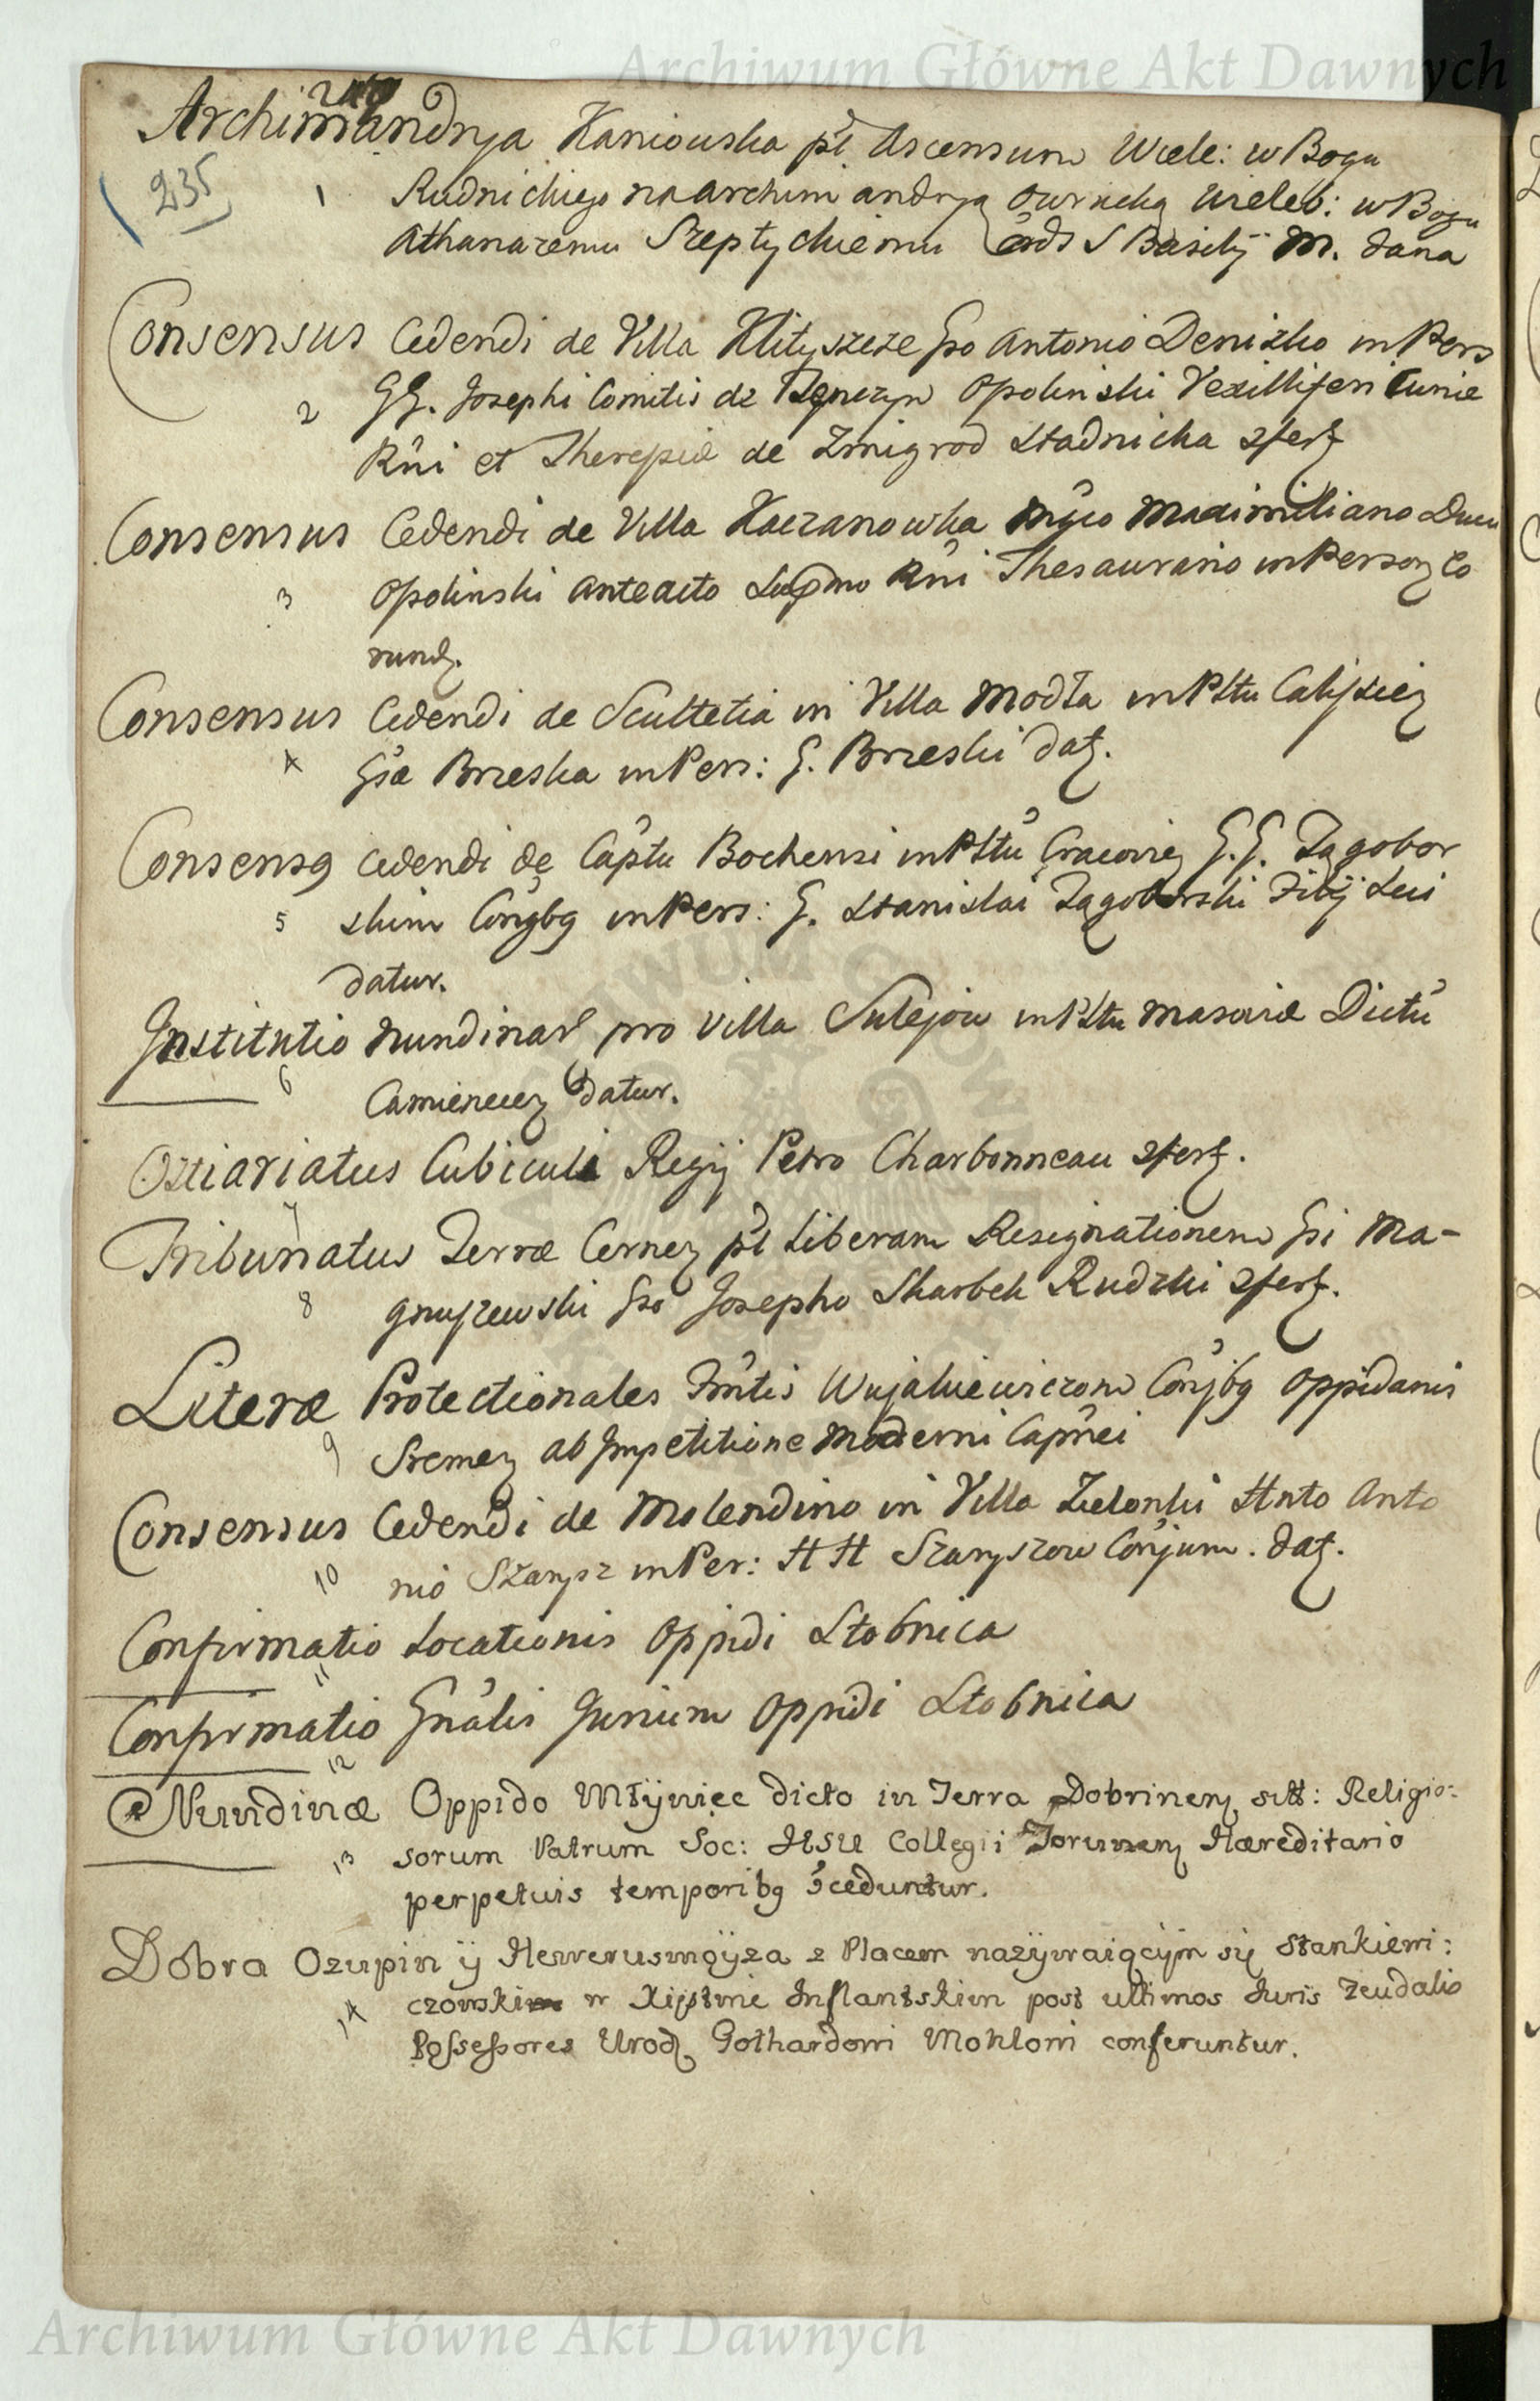 Archiwum Główne Akt Dawnych
Archimandrya Kaniouska pt Ascensum Wiele: w Bogu
235
1 Rudnickiego na archimandryą owrucką Wieleb: w Bogu
Athanazemu Szeptyckiemu Ords S Basilij M. dana
Consensus Cedendi de Villa Klityszcze Gso Antonio Denisko in Pers
2 GG. Josephi Comitis de Tenczyn Opalinski Vexilliferi Curiæ
Rni et Theresiæ de Zmigrod Stadnicka
Consensus Cedendi de Villa Kaczanowka Mgco Maximiliano
3 Opalinski anteacto Supmo Rni Thesaurario in Person Eo
rund.
Consensus Cedendi de Scultetia in Villa Modła in Pttu
4 Gsæ Brzeska in Pers: G. Brzeski dat.
Consens9 cedendi de Captu Bochensi in Pttu G.G. Zagobor
5 skim Conjbg in Pers: G. Stanislai Zagoborski Filij Sui
datur.
Institutio Nundinar pro Villa Sulejow in Pttu Masoviæ Dictu
6 datur.
Ostiariatus Cubiculi Regij Petro Charbonneau
7
Tribunatus Terræ pt Liberam Resignationem Gsi Ma-
8 gnuszewski Gso Josepho Skarbek Rudzki
Literæ Protectionales Conjbg Oppidanis
9 ab Impetitione Moderni Capnei
Consensus Cedendi de Molendino in Villa Zielonki Hnto Anto
10 nio Szarysz in Per: HH Szaryszow Conjum. dat.
Confirmatio Locationis Oppidi Stobnica
11
Confirmatio Gnalis Jurium Oppidi Stobnica
12
Nundinæ Oppido Młÿniec dicto in Terra Dobrinen sitt: Religio:
13 sorum Patrum Soc: JESU Collegii Torunen Hæreditario
perpetuis temporibg cceduntur.
Dobra Ozupin ÿ z Placem nazÿwaiącÿm się Stankiewi:
14 czowskim w Xięstwie Inflantskim post ultimos Juris feudalis
Possessores Urod Gothardowi Mohlowi conferuntur.
Archiwum Główne Akt Dawnych